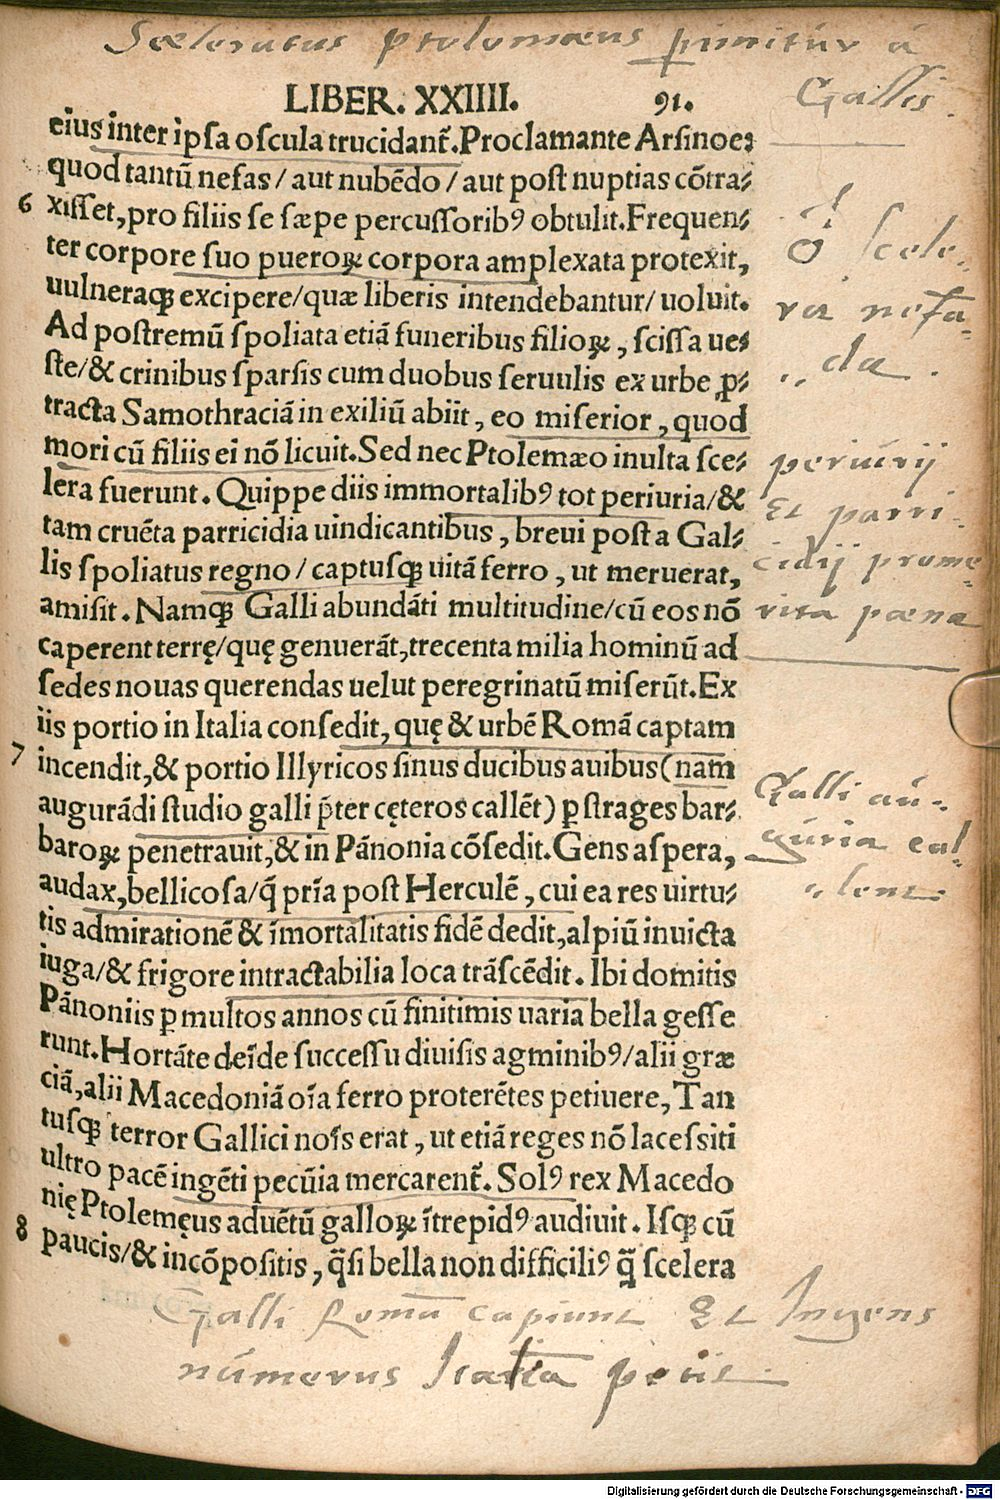 Sceleratus ptolomæus punitur á
Gallis.
LIBER. XXIIII. 91.
eius inter ipsa oscula trucidant᷑. Proclamante Arsinoe;
quod tantū nefas / aut nubēdo / aut post nuptias cōtra⸗
6 xisset, pro filiis se sæpe percussoribꝰ obtulit. Frequen⸗
ter corpore suo pueroꝝ corpora amplexata protexit,
uulneraqꝫ excipere/quæ liberis intendebantur/ uoluit.
Ad postremū spoliata etiā funeribus filioꝝ, scissa ue⸗
ste/& crinibus sparsis cum duobus seruulis ex urbe ꝓ⸗
tracta Samothraciā in exiliū abiit, eo miserior, quod
mori cū filiis ei nō licuit. Sed nec Ptolemæo inulta sce⸗
lera fuerunt. Quippe diis immortalibꝰ tot periuria/&
tam cruēta parricidia uindicantibus, breui post a Gal⸗
lis spoliatus regno / captusqꝫ uitā ferro, ut meruerat,
amisit. Namqꝫ Galli abundāti multitudine/cū eos nō
caperent terrę/quę genuerāt, trecenta milia hominū ad
sedes nouas querendas uelut peregrinatū miserūt. Ex
iis portio in Italia consedit, quę & urbē Romā captam
7 incendit, & portio Illyricos sinus ducibus auibus (nam
augurādi studio galli p̄ter cęteros callēt) ꝑ strages bar⸗
baroꝝ penetrauit, & in Pānonia cōsedit. Gens aspera,
audax, bellicosa/q̄ prīa post Herculē, cui ea res uirtu⸗
tis admirationē & īmortalitatis fidē dedit, alpiū inuicta
iuga/& frigore intractabilia loca trāscēdit. Ibi domitis
Pānoniis ꝑ multos annos cū finitimis uaria bella gesse
runt. Hortāte deīde successu diuisis agminibꝰ/alii græ
ciā, alii Macedoniā oīa ferro proterētes petiuere, Tan
tusqꝫ terror Gallici noīs erat, ut etiā reges nō lacessiti
ultro pacē ingēti pecūia mercarent᷑. Solꝰ rex Macedo
nię Ptolemęus aduētū galloꝝ ītrepidꝰ audiuit. Isqꝫ cū
8 paucis/& incōpositis, q̄si bella non difficiliꝰ q̄̃ scelera
ó scele-
ra nefa-
da.
periurij
Et parri-
cidij prome-
rita pœna
Galli au-
guria cal-
lent
Galli Romā capiunt Et Ingens
numerus Italia petit.
Digitalisierung gefördert durch die Deutsche Forschungsgemeinschaft - DFG